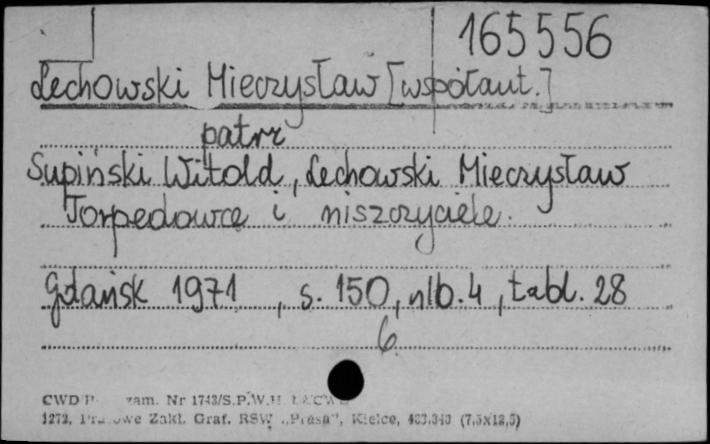 165556
Lechowski Mieczysław [współaut.]
patrz
Supiński Witold, Lechowski Mieczysław
Torpedowce i niszczyciele.
Gdańsk 1971, s. 150, nlb. 4, tabl. 28
6
CWD zam. Nr 1743/S.P.W.H.
1272, Zakł. Graf. RSW „Prasa", Kielce, (7,5x12,5)